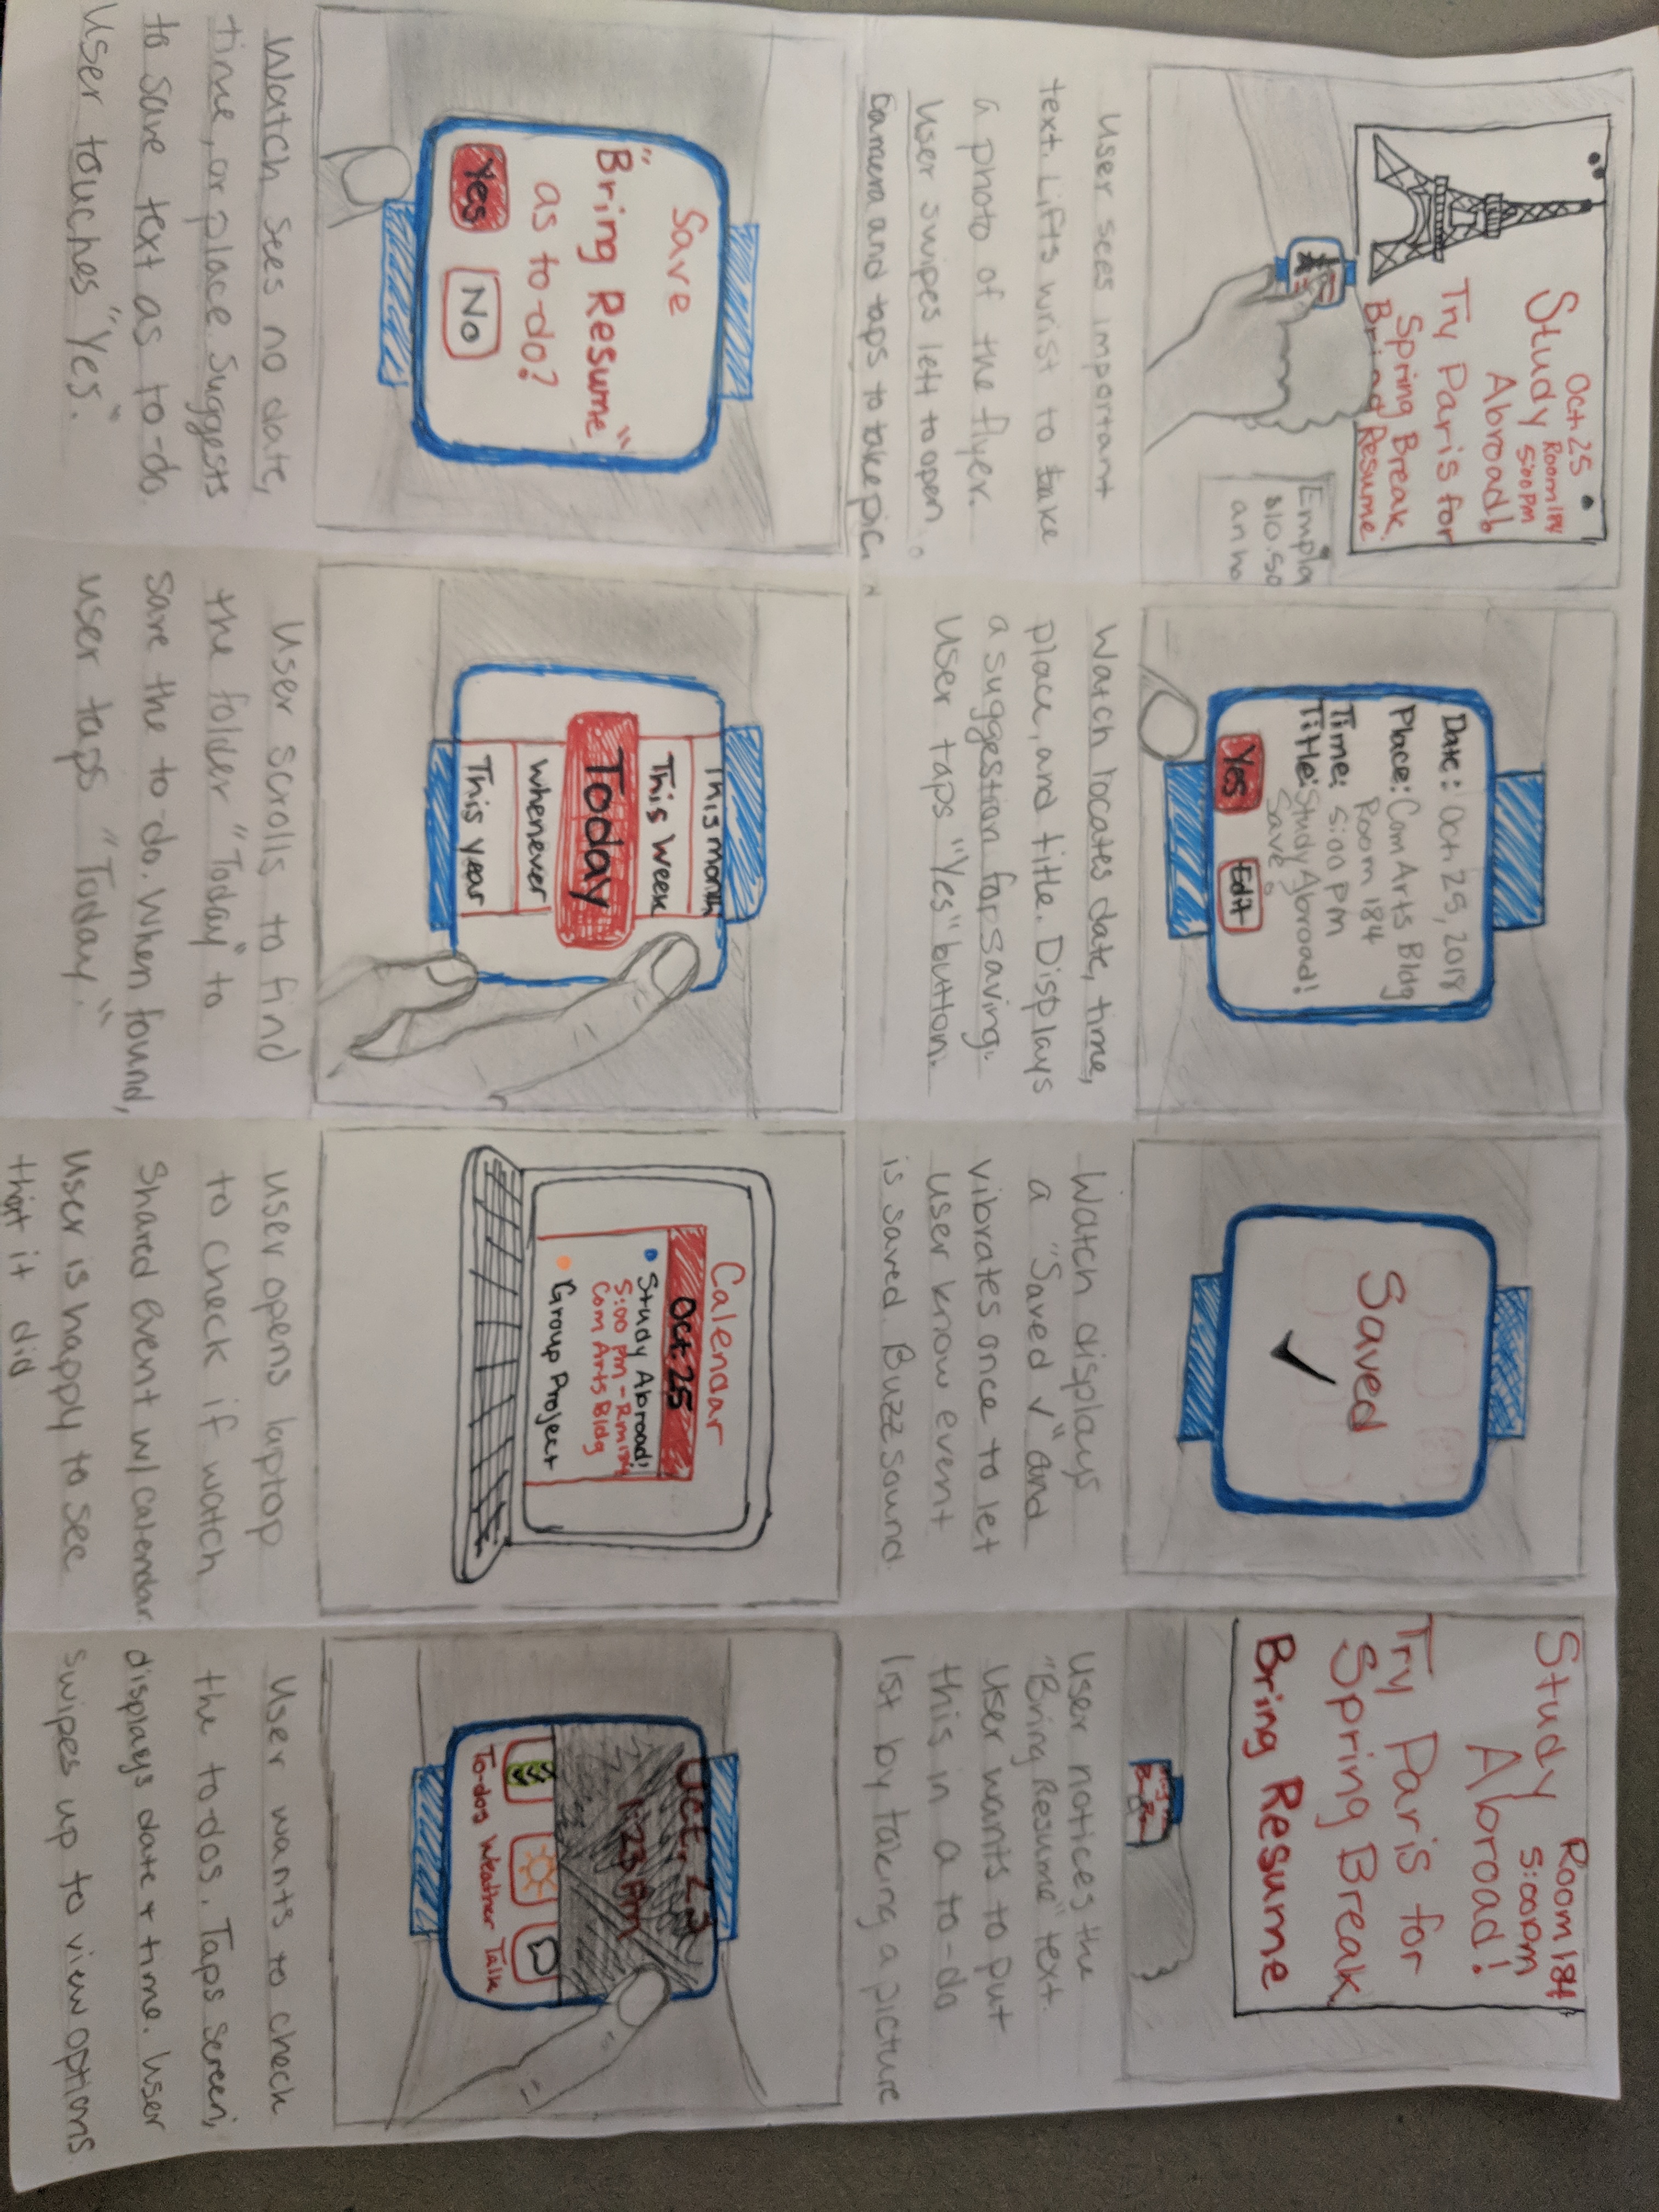 Oct. 25
Study Room 184
5:00 PM
Abroad!
Try Paris for
Spring Break.
Bring Resume
Emplo
$10.50
an ho
User sees important
text. Lifts wrist to take
a photo of the flyer.
User swipes left to open
Camera and taps to take pic.
Date: Oct. 25, 2018
Place: Com Arts Bldg
Room 184
Time: 5:00 PM
Title: Study Abroad!
Save?
Yes Edit
Watch locates date, time,
place, and title. Displays
a suggestion for saving.
User taps "Yes" button.
Saved
✓
Watch displays
a "Saved ✓" and
vibrates once to let
user know event
is saved. Buzz sound
Study Room 184
5:00pm
Abroad!
Try Paris for
Spring Break.
Bring Resume
User notices the
"Bring Resume" text.
User wants to put
this in a to-do
list by taking a picture
Save
"Bring Resume"
as to-do?
Yes No
Watch sees no date,
time, or place. Suggests
to save text as to-do.
User touches "Yes."
This month
This Week
Today
Whenever
This year
User scrolls to find
the folder "Today" to
save the to-do. When found,
user taps "Today."
Calendar
Oct. 25
Study Abroad!
5:00 pm - Rm 184
Com Arts Bldg
Group Project
User opens laptop
to check if watch
shared event w/ calendar.
User is happy to see
that it did
Oct. 23
1:23 PM
To-dos Weather Talk
User wants to check
the to-dos. Taps screen,
displays date + time. User
swipes up to view options